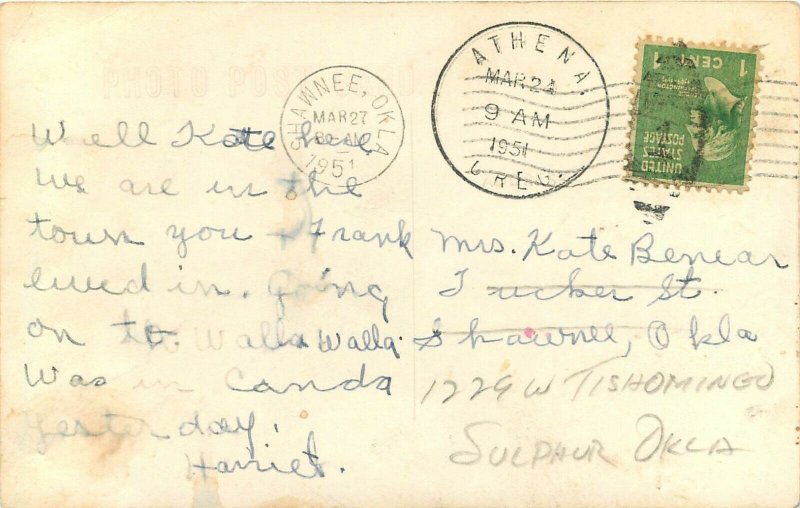 SHAWNEE, OKLA
MAR 27
AM
1951
ATHENA,
MAR 24
9 AM
1951
OREG.
1 CENT
UNITED
STATES
POSTAGE
Well Kate here
We are in the
town you + Frank
lived in. Going
on to Walla Walla.
Was in Canda
yesterday.
Harriet.
Mrs. Kate Benear
Tucker St.
Shawnee, Okla
1229 W TISHOMINGO
SULPHUR OKLA